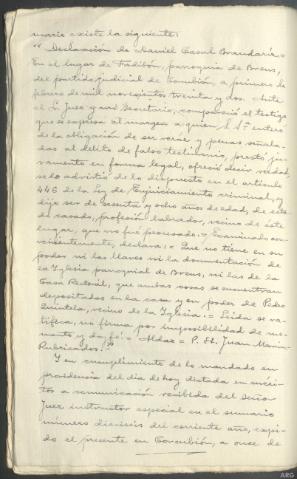 mario existe la siguiente:
"Declaración de Manuel Casul Brandariz.=
En el lugar de Fradibón, parroquia de Brens,
del partido judicial de Corcubión, a primero de
febrero de mil novecientos treinta y dos. Ante
el Sr. Juez y mi Secretario, compareció el testigo
que se expresa al margen a quien S. Sª enteró
de la obligación de ser veraz y penas señala-
das al delito de falso testimonio, prestó ju-
ramento en forma legal, ofreció decir verdad,
se lo advirtió de lo dispuesto en el artículo
446 de la Ley de Enjuiciamiento criminal, y
dijo ser de sesenta y ocho años de edad, de esta-
do casado, profesión labrador, vecino de este
lugar, que no fué procesado. = Examinado con-
venientemente, declara: = Que no tiene en su
poder ni las llaves ni la documentación de
la Iglesia parroquial de Brens, ni las de la
Casa Rectoral, que ambas cosas se encuentran
depositadas en la casa y en poder de Pedro
Quintela, vecino de la Iglesia. = Leída se ra-
tifica, no firma por imposibilidad de mo-
mento y doy fé. = Aldao = P. H. Juan Marin=
Rubricados."
Y en cumplimiento de lo mandado en
providencia del día de hoy dictada en méri-
tos a comunicación recibida del Señor
Juez instructor especial en el sumario
número dieciseis del corriente año, expi-
do el presente en Corcubión, a once de
ARG